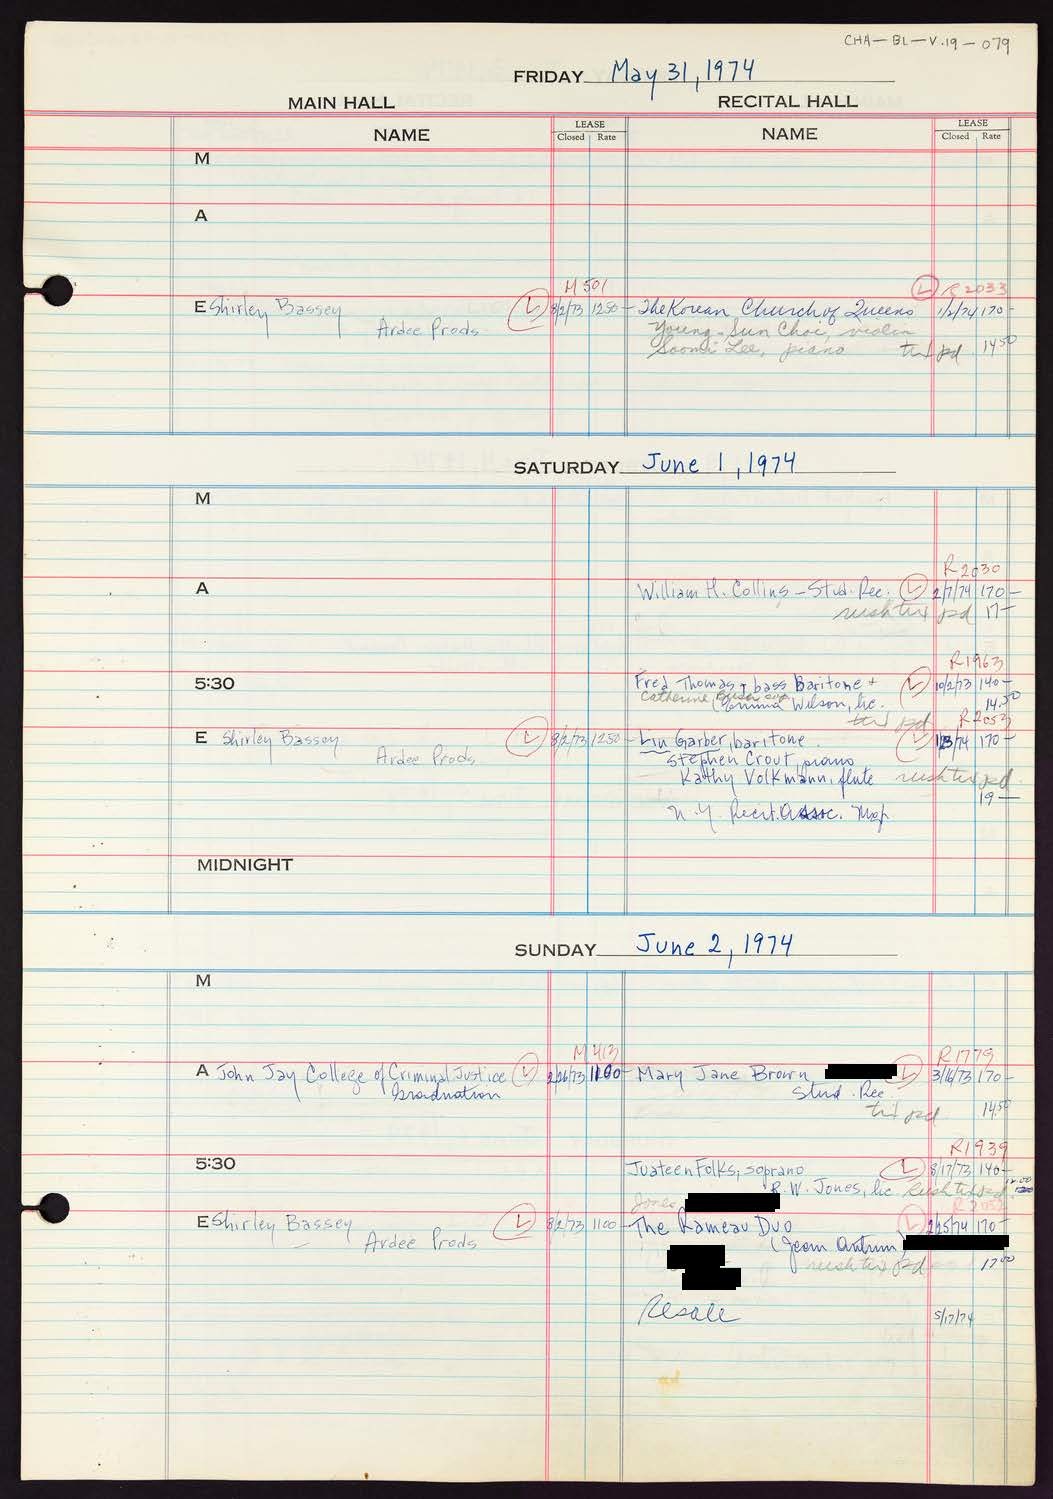 CHA-BL-V.19-079
FRIDAY May 31, 1974
MAIN HALL RECITAL HALL
NAME LEASE Closed Rate NAME LEASE Closed Rate
M
A
M 501 L R 2033
E Shirley Bassey L 8/2/73 1250- The Korean Church of Queens 1/2/74 170-
Ardee Prods Young-Sun Choi, violin
Soomi Lee, piano pd 14.50
SATURDAY June 1, 1974
M
R2030
A William H. Collins - Stud. Rec. L 2/7/74 170-
rush pd 17-
R1963
5:30 Fred Thomas, bass Baritone + L 10/2/73 140-
Catherine Wilson, lic. 14.50
pd
E Shirley Bassey L 8/2/73 1250- Lin Garber, baritone L 170-
Ardee Prods, Stephen Crout, piano
Kathy Volkmann, flute rush pd
19-
N.Y. Recit. Assoc.
MIDNIGHT
SUNDAY June 2, 1974
M
M 413 R1779
A John Jay College of Criminal Justice L 2/26/73 1100- Mary Jane Brown L 3/16/73 170-
Graduation Stud. Rec
pd 14.50
R1939
5:30 Juateen Folks, soprano L 8/17/73 140-
R.W. Jones, lic. Rush
Jones
E Shirley Bassey L 8/2/73 1100- The Rameau Duo L 2/25/74 170-
Ardee Prods (Jean Antrim)
rush pd 17.00
Resale 5/17/74